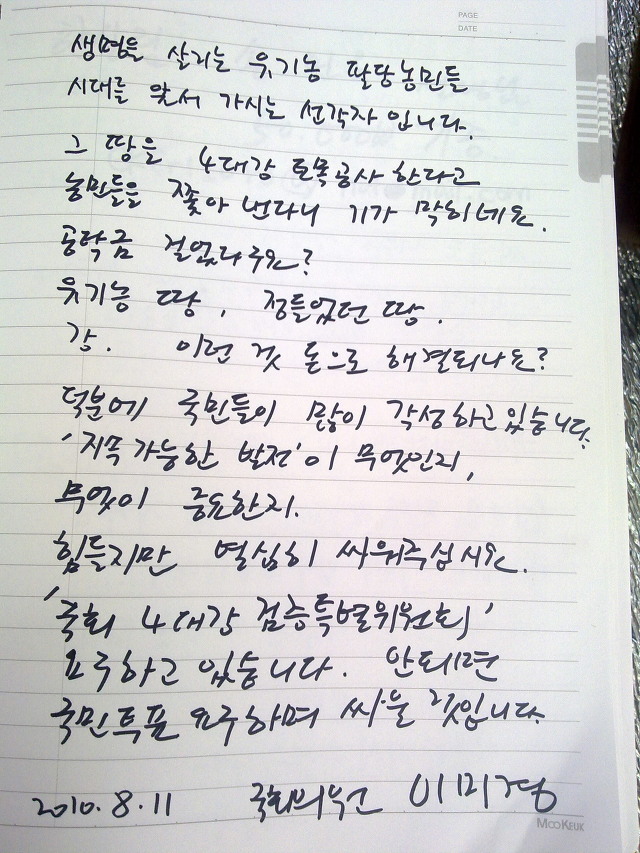 PAGE
DATE
생명을 살리는 유기농 팔당농민들
시대를 앞서 가시는 선각자 입니다.
그 땅을 4대강 토목공사 한다고
농민들을 쫓아 낸다니 기가 막히네요.
공탁금 걸었다구요?
유기농 땅, 정들었던 땅.
강. 이런 것 돈으로 해결되나요?
덕분에 국민들이 많이 각성하고 있습니다.
'지속가능한 발전'이 무엇인지,
무엇이 중요한지.
힘들지만 열심히 싸워주십시오.
'국회 4대강 검증특별위원회'
요구하고 있습니다. 안되면
국민투표 요구하며 싸울 것입니다.
2010. 8. 11 국회의원 이미경
MOOKEUK